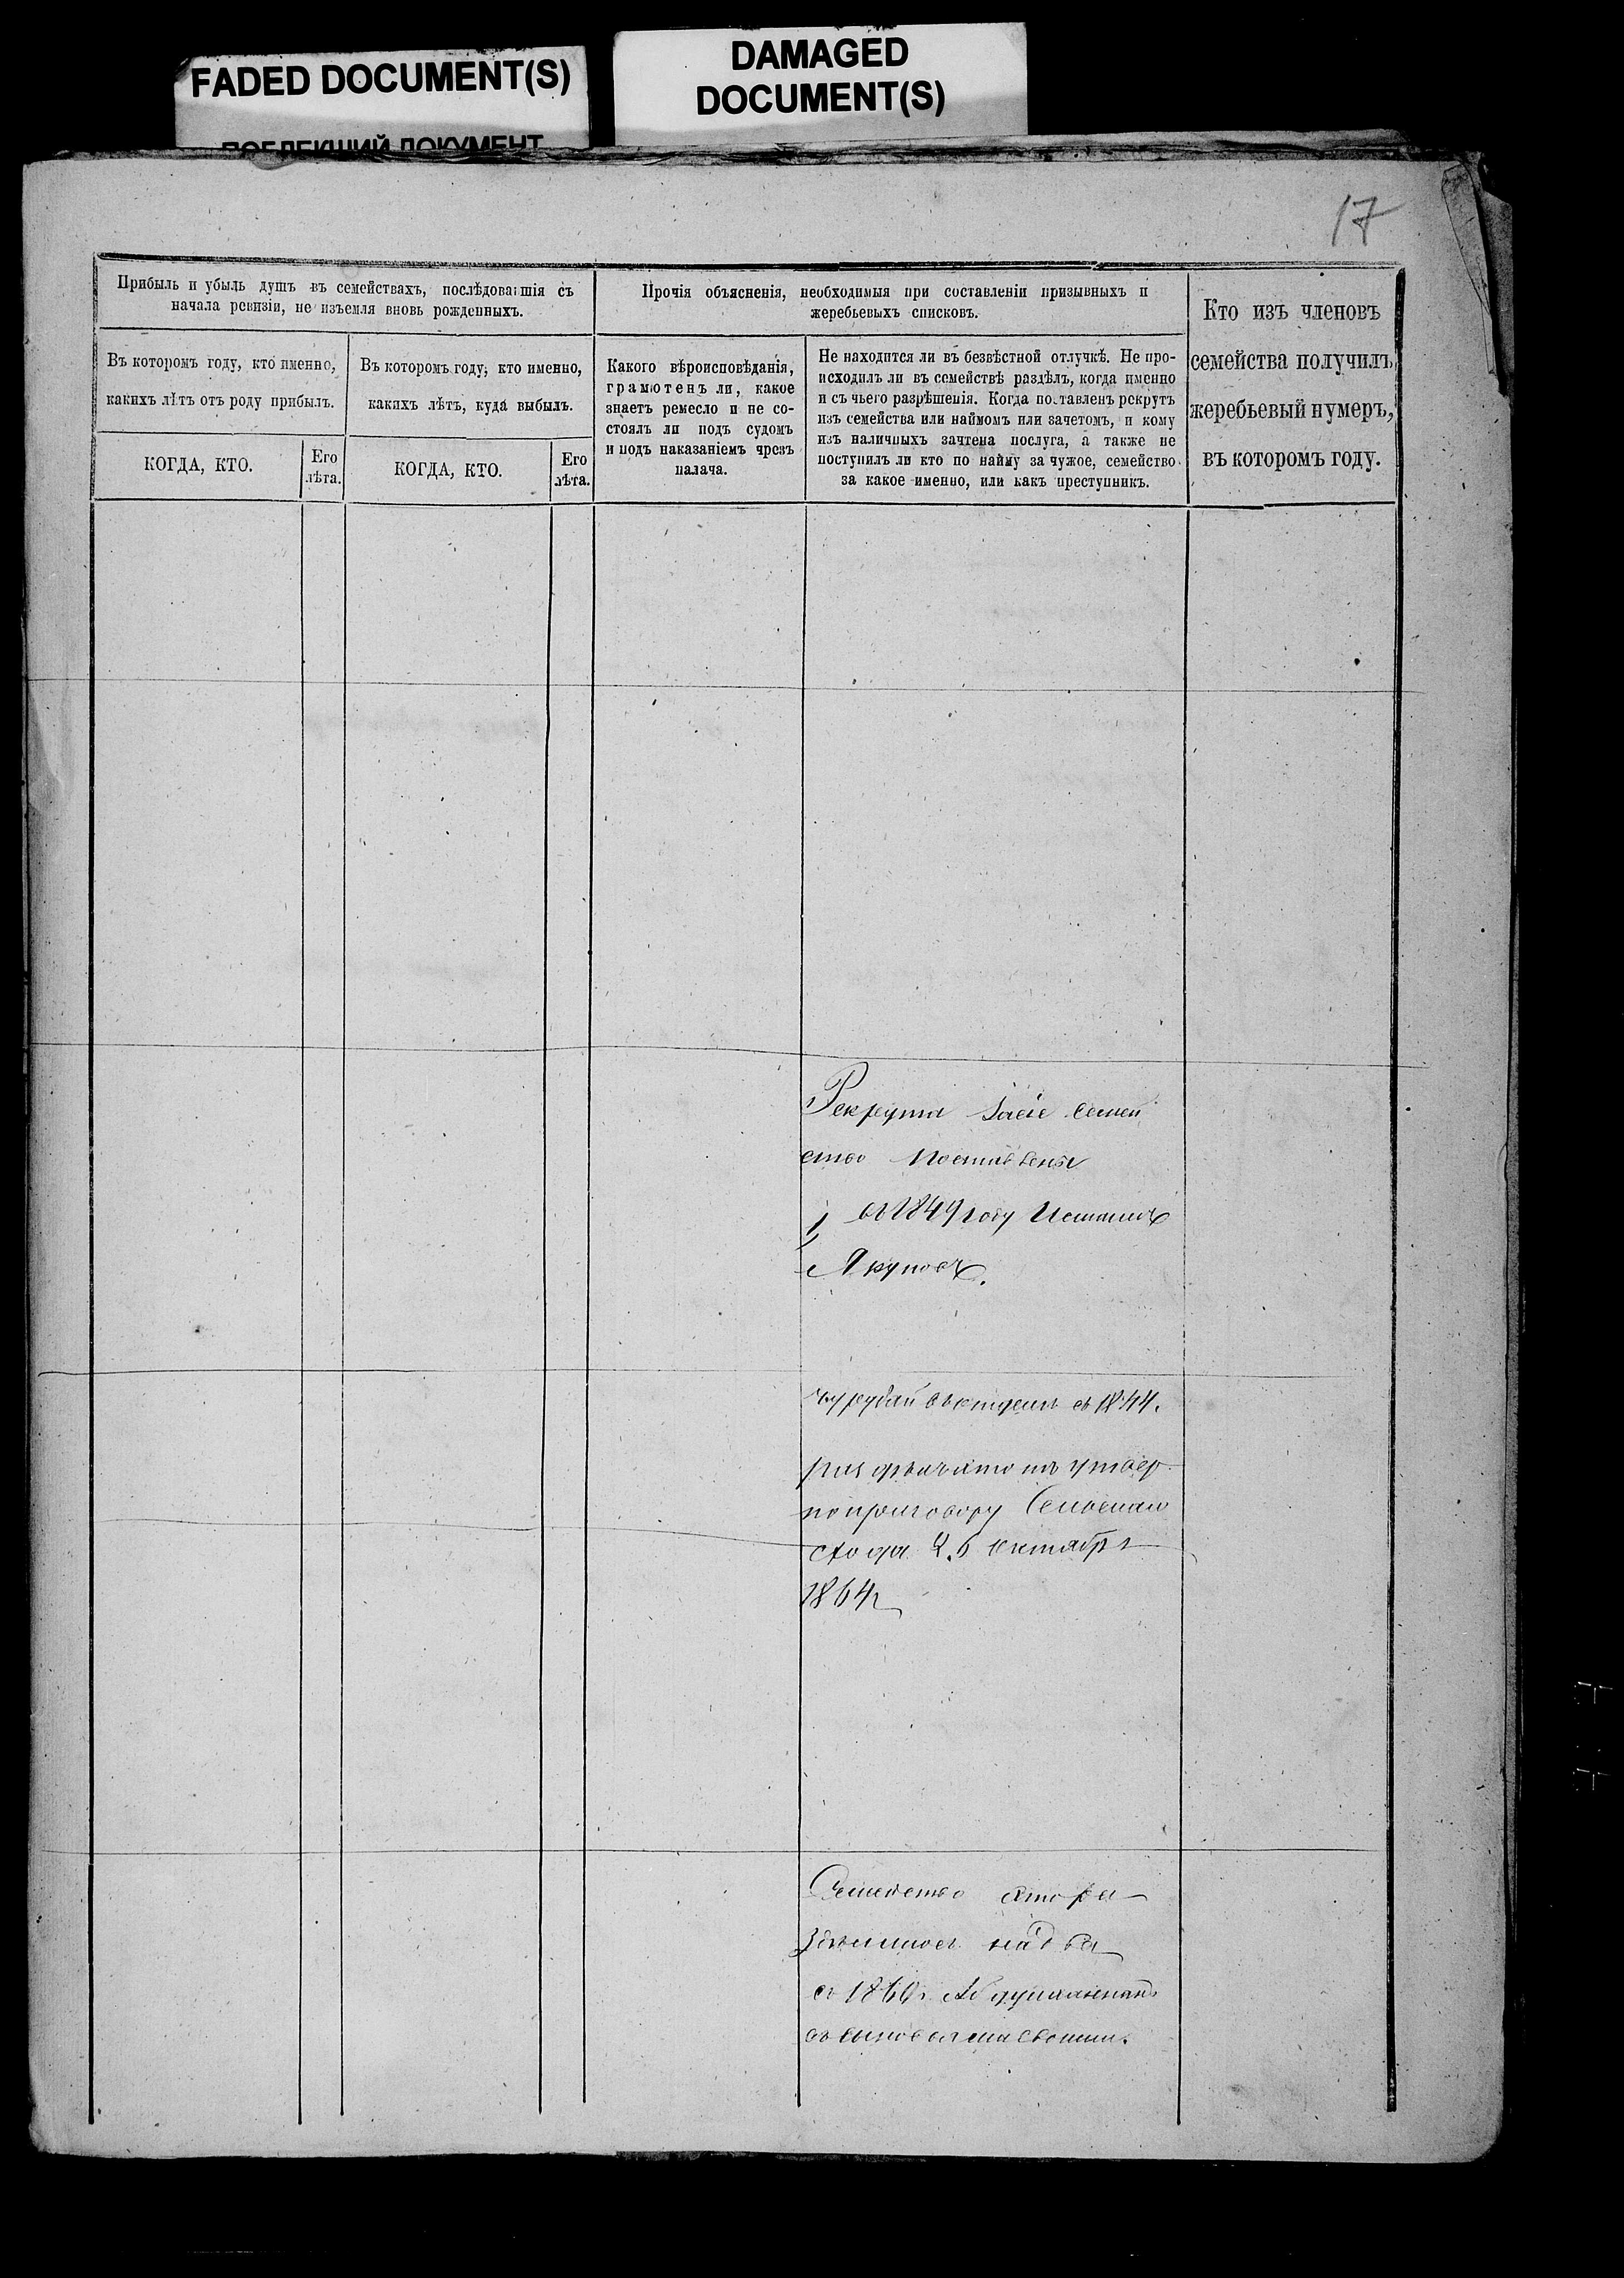 FADED DOCUMENT(S)
DAMAGED
DOCUMENT(S)
ПОБЛЕКШИЙ ДОКУМЕНТ
17
Прибыль и убыль душъ въ семействахъ, послѣдовавшія съ
начала ревизіи, не изъемля вновь рожденныхъ.
Прочія объясненія, необходимыя при составленіи призывныхъ и
жеребьевыхъ списковъ.
Кто изъ членовъ
семейства получилъ
жеребьевый нумеръ,
въ которомъ году.
Въ которомъ году, кто именно,
какихъ лѣтъ отъ роду прибылъ.
Въ которомъ году, кто именно,
какихъ лѣтъ, куда выбылъ.
Какого вѣроисповѣданія,
грамотенъ ли, какое
знаетъ ремесло и не со-
стоялъ ли подъ судомъ
и подъ наказаніемъ чрезъ
палача.
Не находится ли въ безвѣстной отлучкѣ. Не про-
исходилъ ли въ семействѣ раздѣлъ, когда именно
и съ чьего разрѣшенія. Когда поставленъ рекрутъ
изъ семейства или наймомъ или зачетомъ, и кому
изъ наличныхъ зачтена послуга, а также не
поступилъ ли кто по найму за чужое, семейство
за какое именно, или какъ преступникъ.
КОГДА, КТО.
Его
лѣта.
КОГДА, КТО.
Его
лѣта.
Рекрута
ство
1 1849 году
Якуповъ.
1844.
по приговору
схода 26 октября
1864 г
Семейство
на два
1860 г.